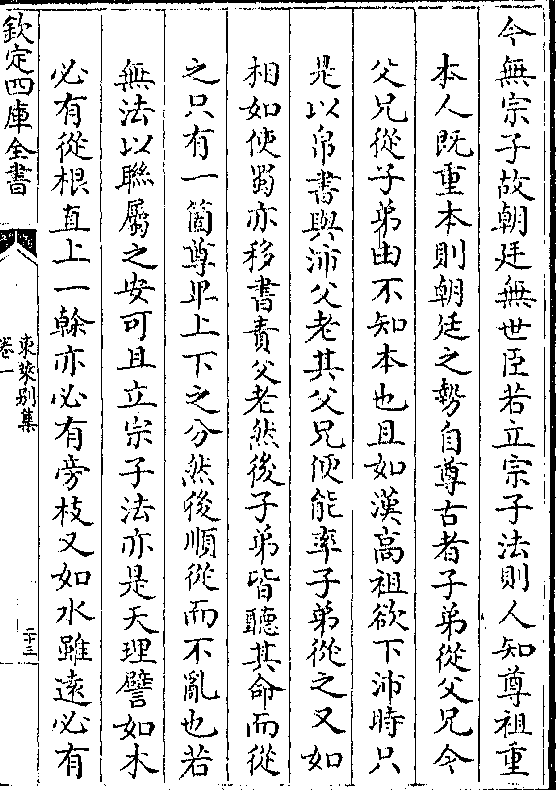 今無宗子故朝廷無世臣若立宗子法則人知尊祖重
本人既重本則朝廷之勢自尊古者子弟從父兄今
父兄從子弟由不知本也且如漢高祖欲下沛時只
是以帛書與沛父老其父兄便能率子弟從之又如
相如使蜀亦移書責父老然後子弟皆聽其命而從
之只有一箇尊卑上下之分然後順從而不亂也若
無法以聯屬之安可且立宗子法亦是天理譬如木
必有從根直上一榦亦必有旁枝又如水雖遠必有
欽定四庫全書
東萊別集
卷一
二十三